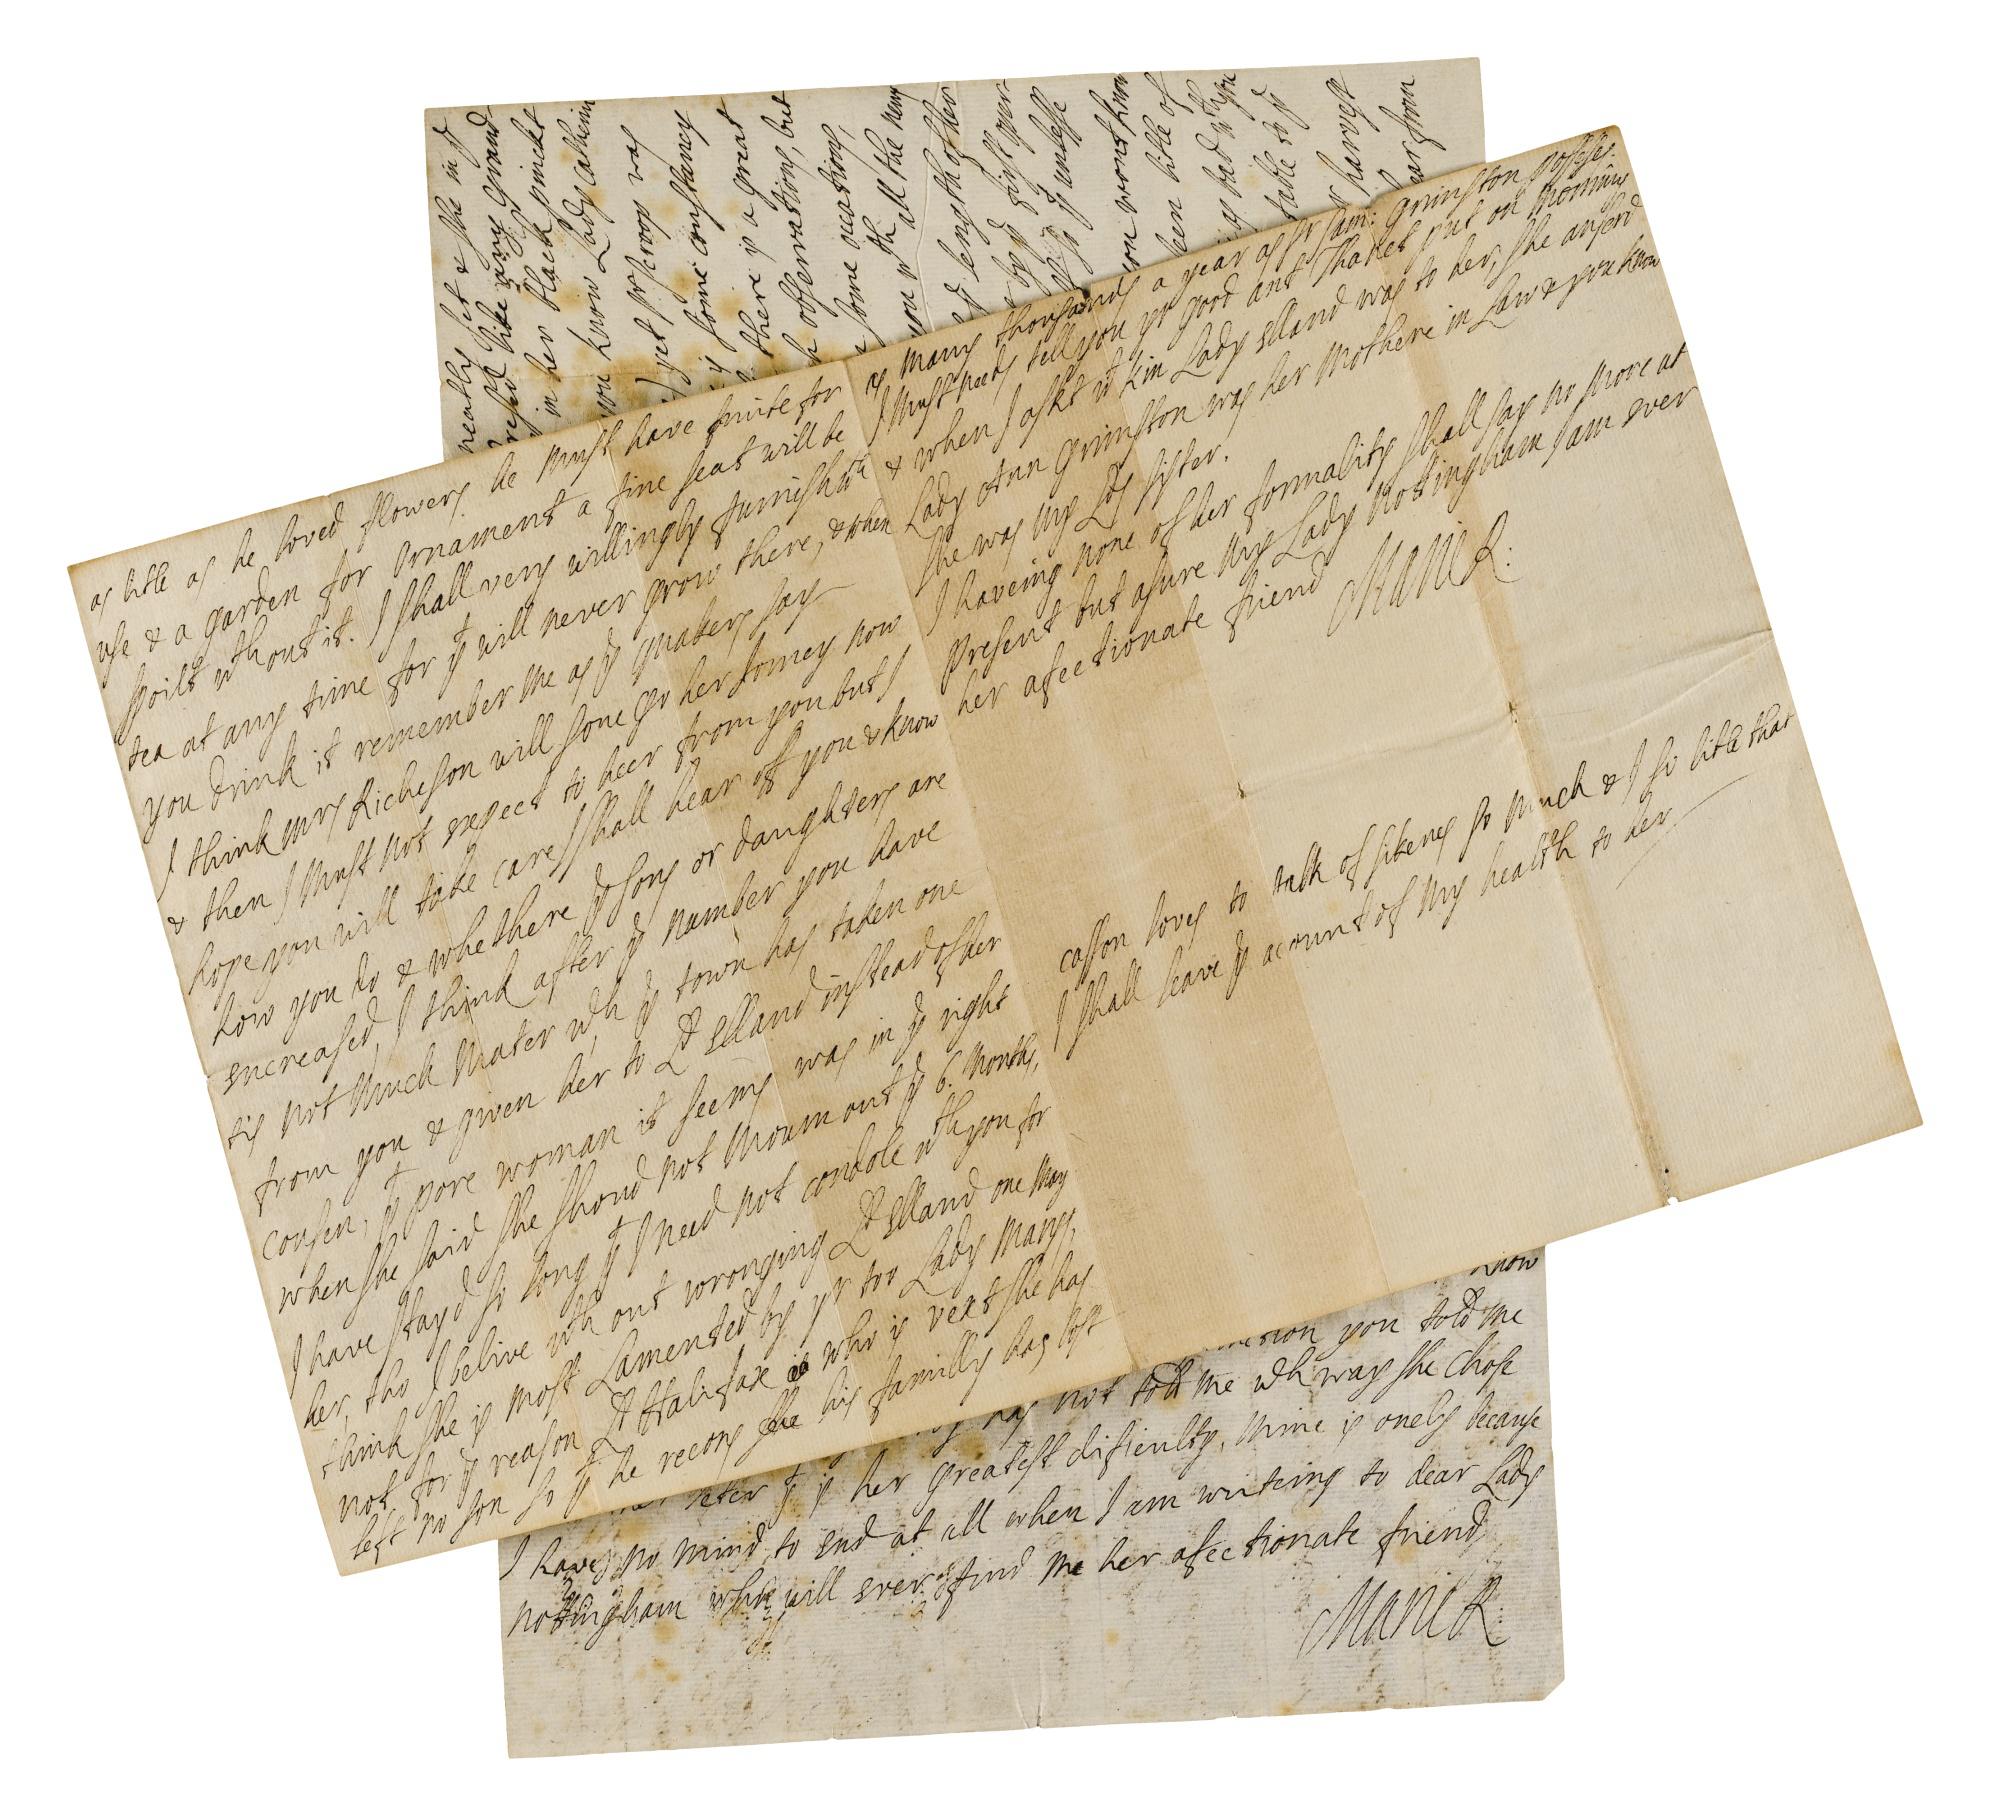 as litle as he loved flowers he must have fruite for
use & a garden for ornament a fine seat will be
spoilt wthout it. I shall very willingly furnish wth
tea at any time for yt will never grow there, & when
you drink it remember me as ye quakers say
I think Mrs Richeson will sone go her Jorney now
& then I must not expect to heer from you but I
hope you will take care I shall hear of you & know
how you do & whethere ye sons or daughters are
encreased, I think after ye number you have
tis not much mater wch ye town has taken one
from you & given her to Ld Elland instead of her
cousen, yt pore woman it seems was in ye right
when she said she shoud not mourn out ye 6. Months,
I have stayd so long yt I need not condole wth you for
her, tho I belive wth out wronging Ld Elland one may
think she is most Lamented by yr too Lady Marys,
not for ye reason Ld Hallifax is who is vext she has
left no son so yt he recons his familly has lost
as many thousands a year as Sr Sam: Grimston posseses.
I must needs tell you yr good ant Thanet put on Morning
& when I askt wt kin Lady Elland was to her, she anserd
Lady Ann Grimston was her Mothere in Law & you know
she was my Lds sister.
I haveing none of her formality shall say no more at
present but asure my Lady Nottingham I am ever
her afectionate friend
Marie R:
casson loves to talk of sikenes so much & I so litle that
I shall leave ye acount of my health to her
neatly set & she in
like any grand
in her black pinckt
you know Lady Catherin
yet prserves
some constancy
there is a great
observations, but
some ocations,
you wth all the news
length of her
first
unlesse
you wont know
been litle of
as bad wth you
table to ye
harvest
hear from
know
you told me
has not told me wch way she chose
her leter yt is her greatest dificulty, mine is onely because
I have no mind to end at all when I am writeing to dear Lady
Nottingham who will ever find me her afectionate friend
Marie R